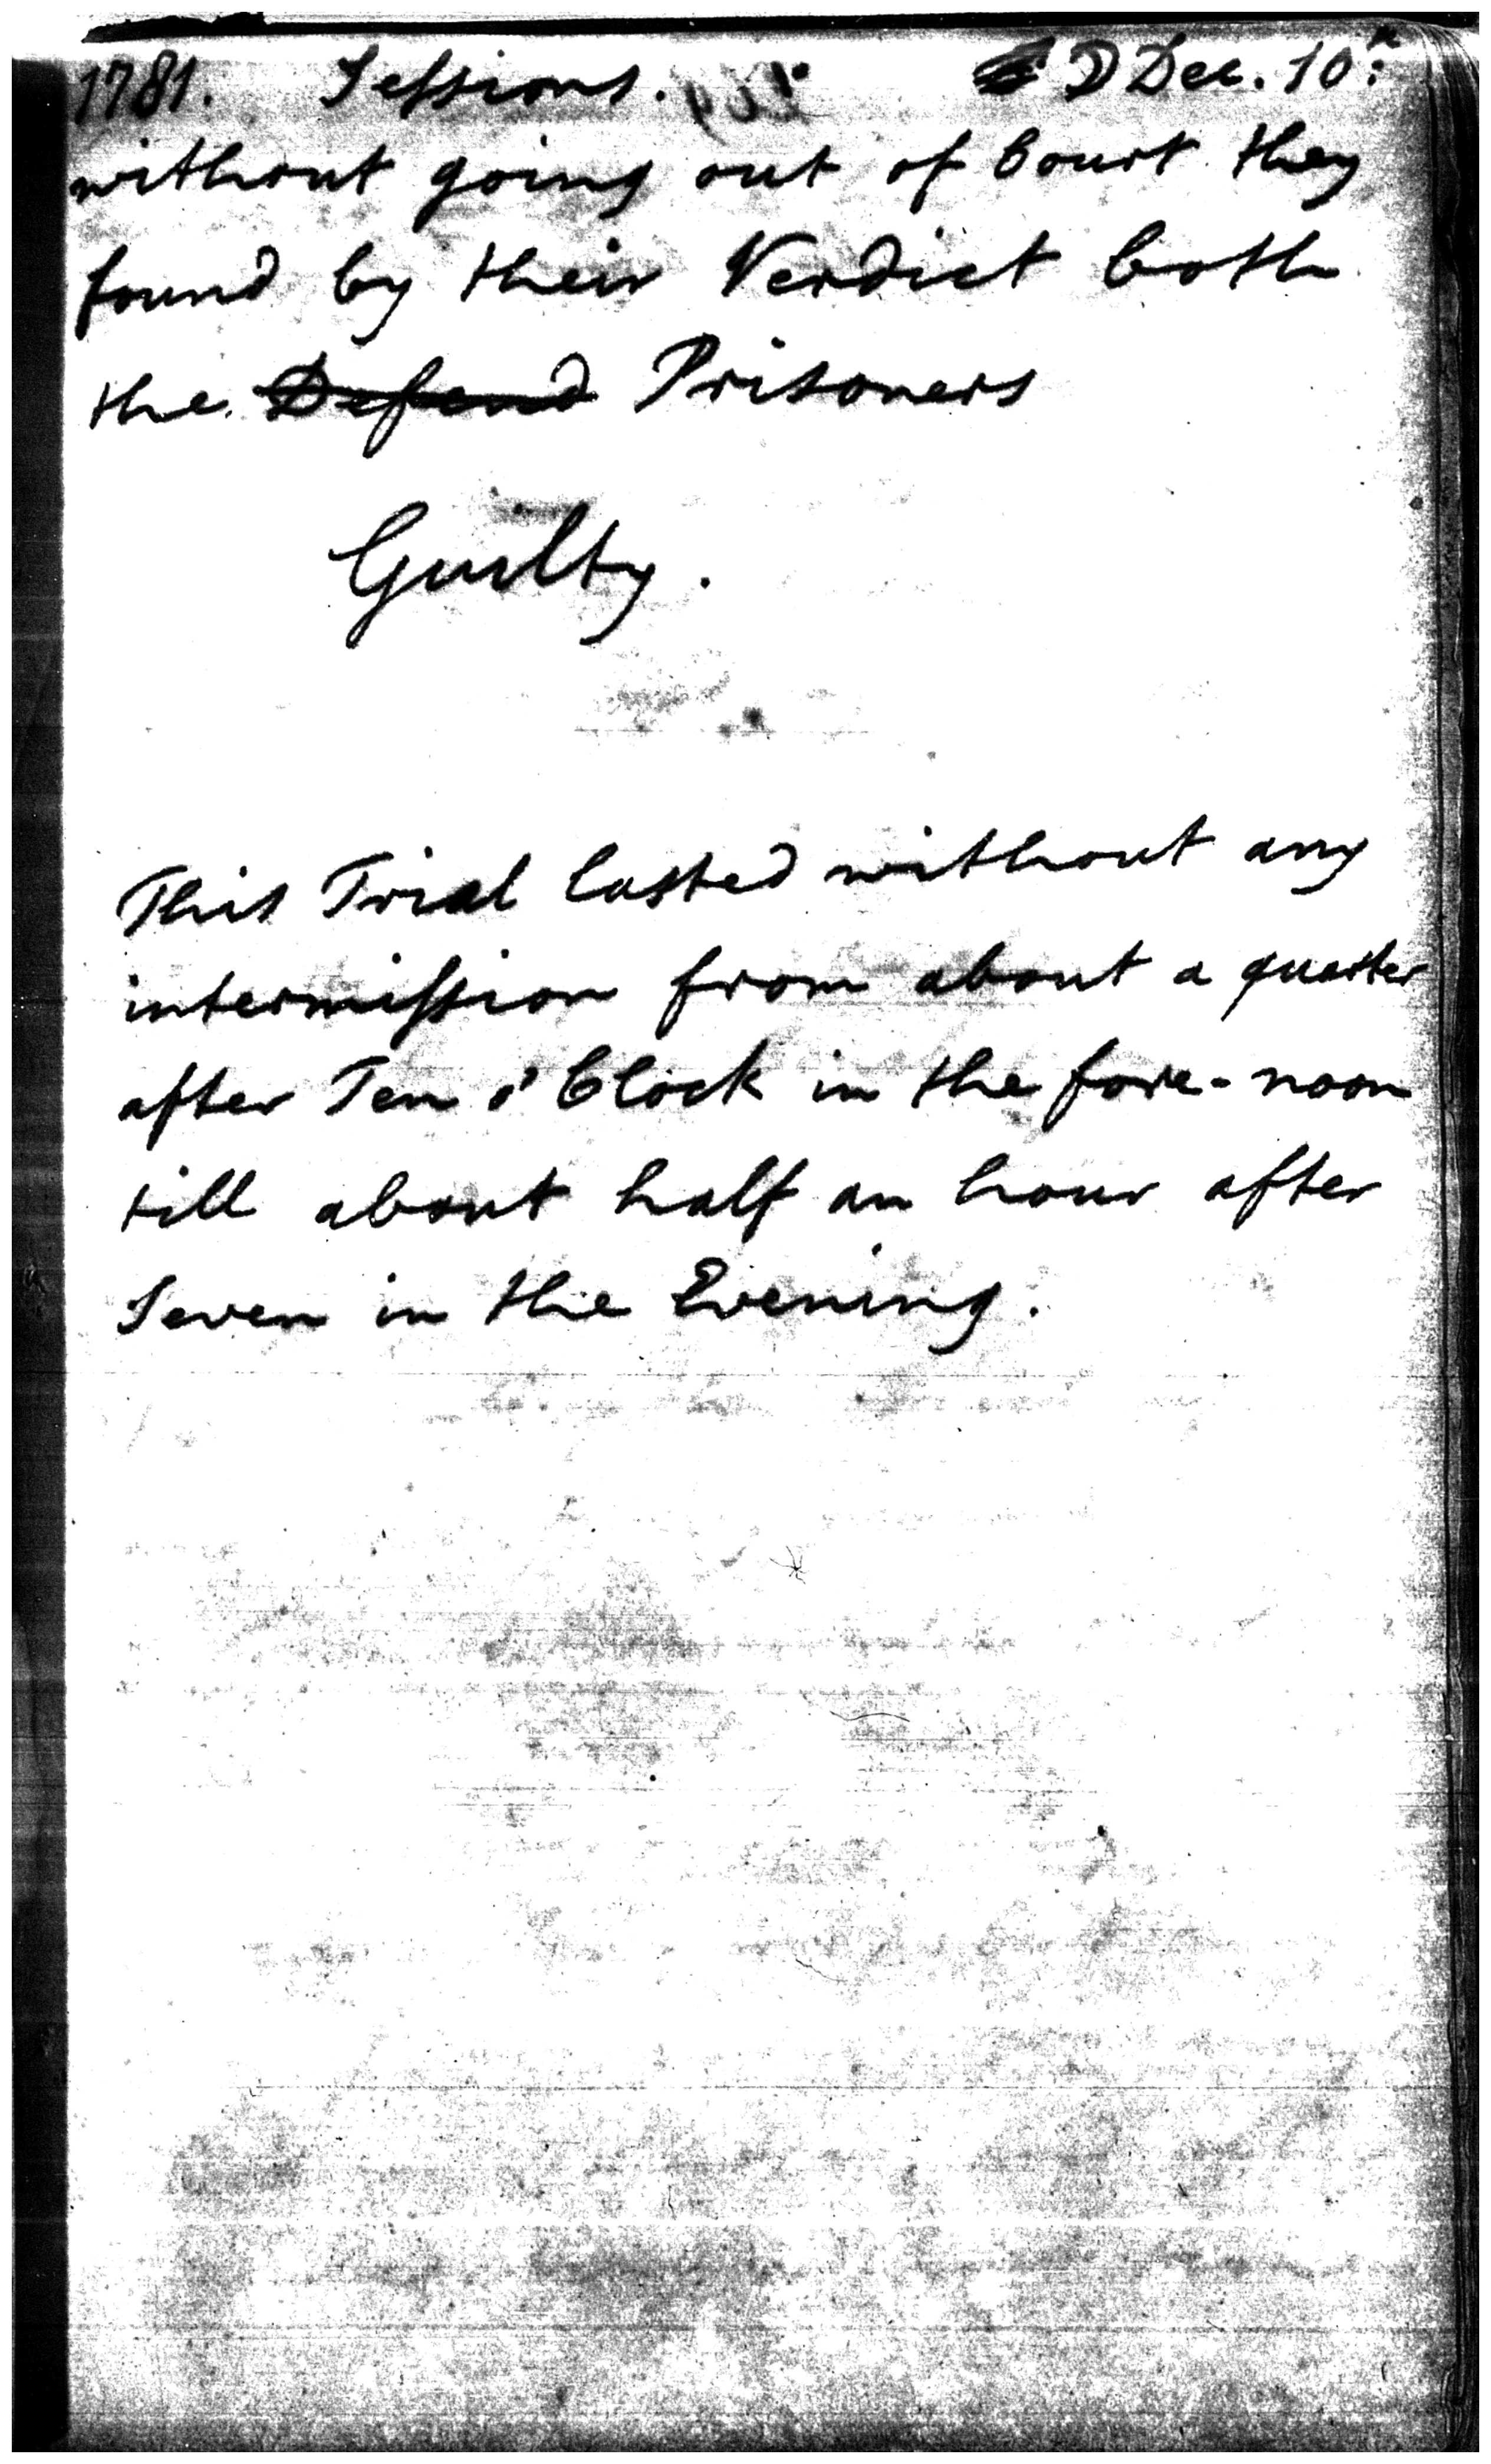 1781. Sessions. ☽ Dec. 10.th
without going out of Court they
found by their Verdict both
the Defend Prisoners
Guilty.
This Trial lasted without any
intermiſsion from about a quarter
after Ten o'Clock in the fore-noon
till about half an hour after
Seven in the Evening.